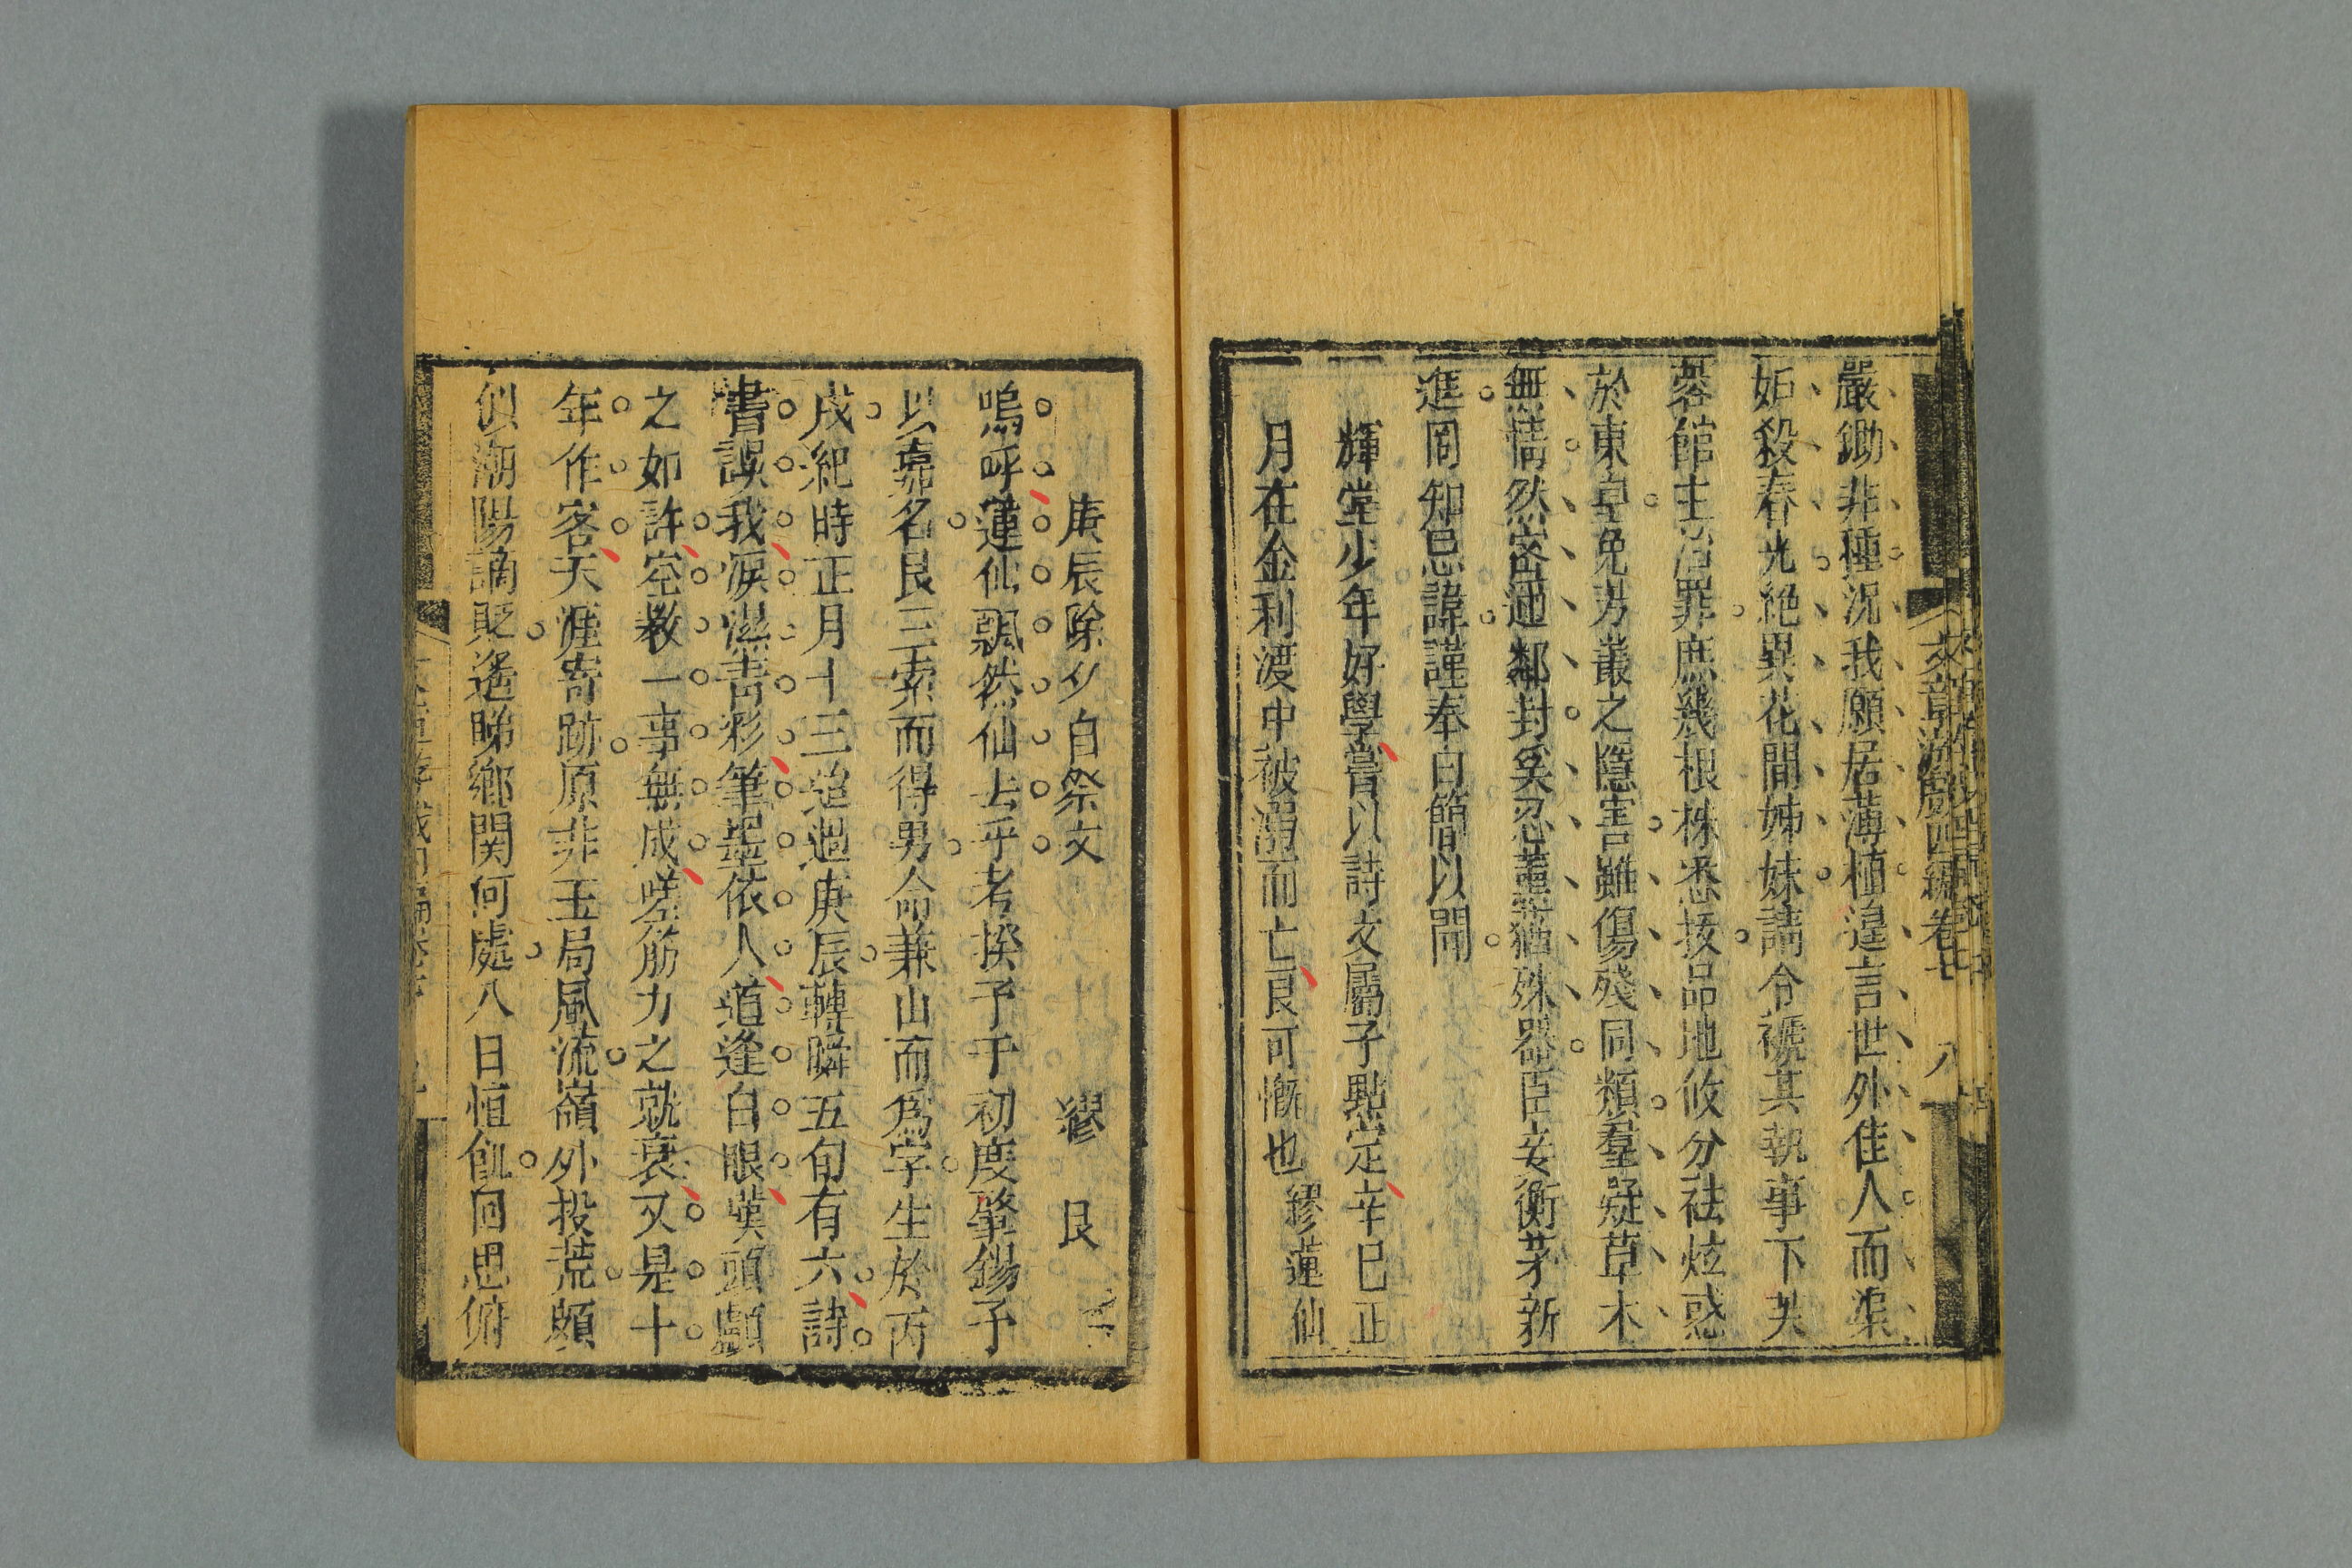 文章游戲四編卷七 八
嚴鋤非種況我願居薄植遑言世外佳人而渠
妬殺春光絕異花間姊妹請令褫其執事下芙
蓉館主治罪庶幾根株悉拔品地攸分祛炫惑
於東皇免芳叢之隱害雖傷殘同類羣疑草木
無情然密邇鄰封奚忍薰蕕殊器臣妾衡茅新
進罔知忌諱謹奉白簡以聞
輝堂少年好學嘗以詩文屬予點定辛巳正
月在金利渡中被溺而亡良可慨也繆蓮仙
庚辰除夕自祭文 繆 艮
嗚呼蓮仙飄然仙去乎考揆予于初度肇錫予
以嘉名艮三索而得男命兼山而爲字生於丙
戌紀時正月十三迨週庚辰轉瞬五旬有六詩
書誤我淚濕青彩筆墨依人道逢白眼嘆頭顱
之如許空教一事無成嗟筋力之就衰又是十
年作客天涯寄跡原非玉局風流嶺外投荒頗
似潮陽謫貶遙睇鄉関何處八日恒飢回思俯